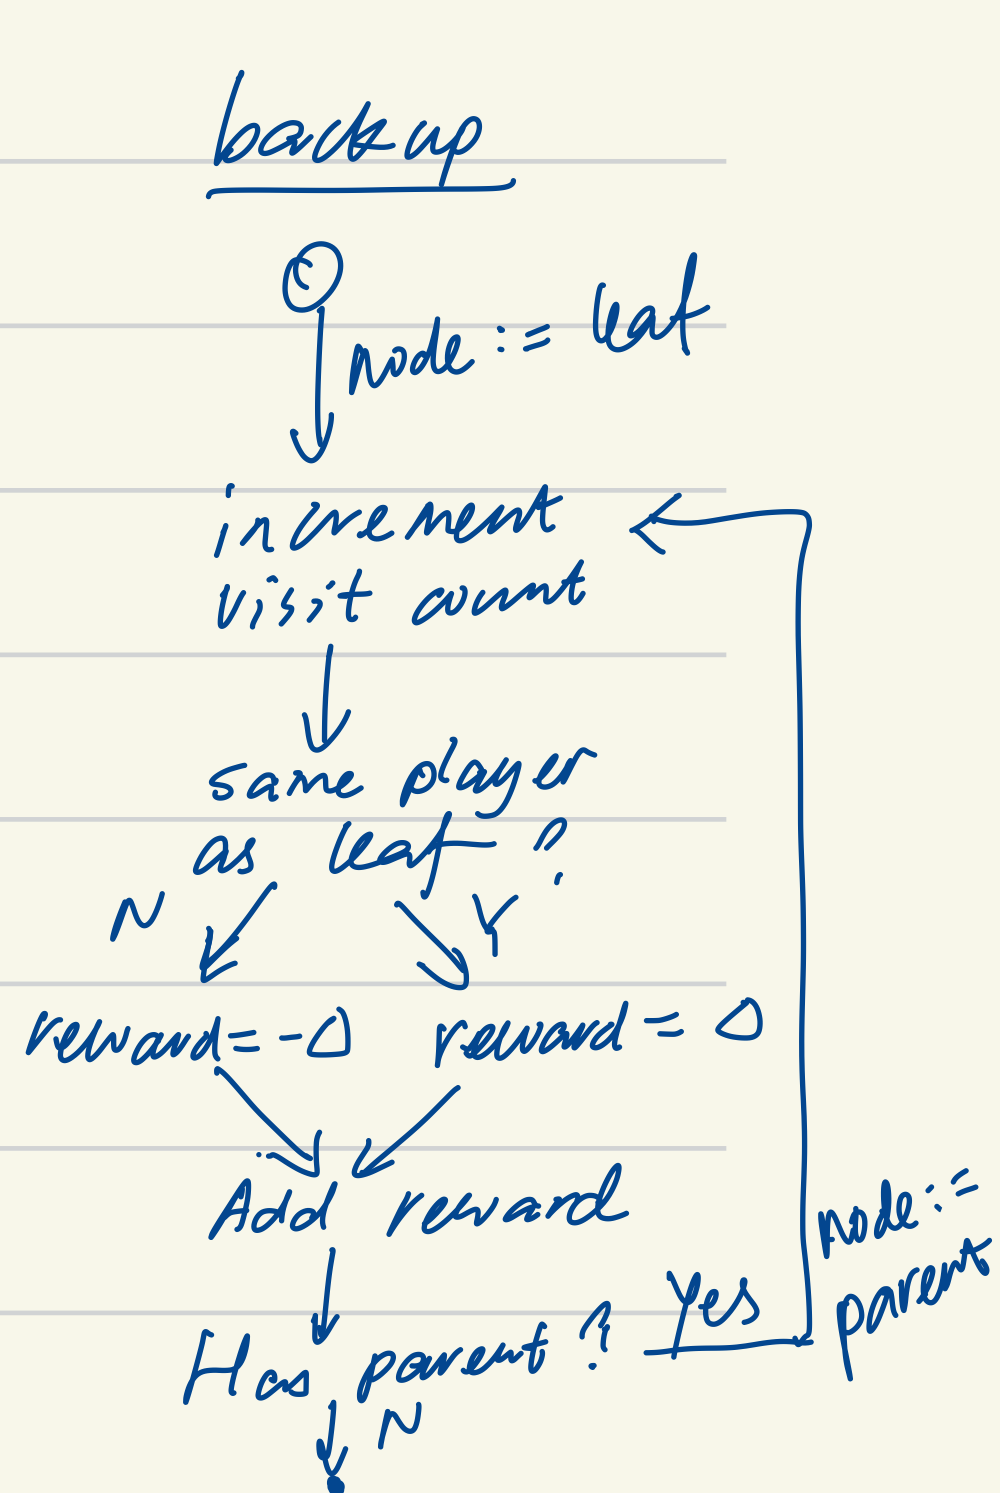 backup
node := leaf
increment
visit count
same player
as leaf?
N
Y
reward = -Δ
reward = Δ
Add reward
Has parent?
Yes
node :=
parent
N